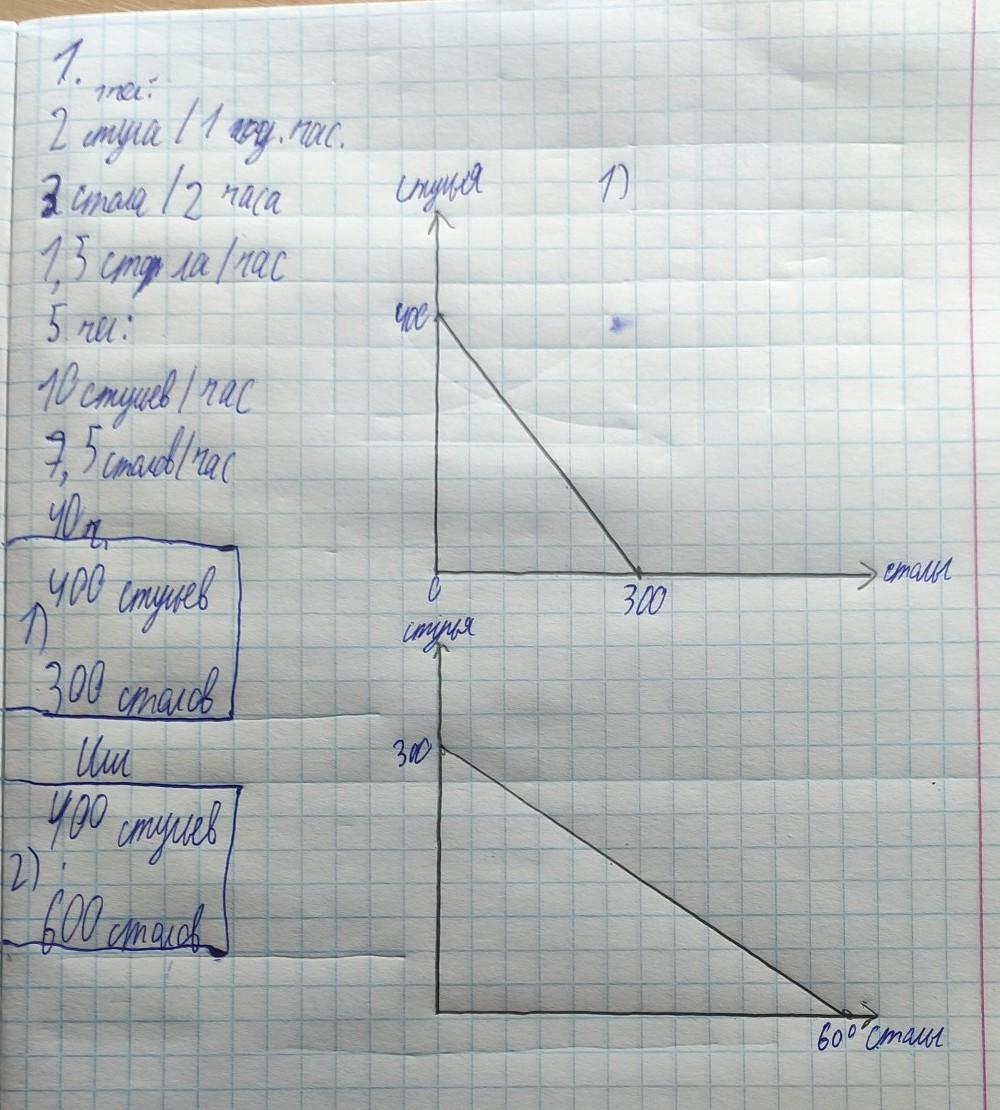 1.
чел:
2 стула / 1 час.
3 стола / 2 часа
1,5 стола / час
5 чел:
10 стульев / час
7,5 столов / час
40 ч.
1)
400 стульев
300 столов
Или
2)
400 стульев
600 столов
стулья
1)
400
0
300
столы
стулья
300
600
столы